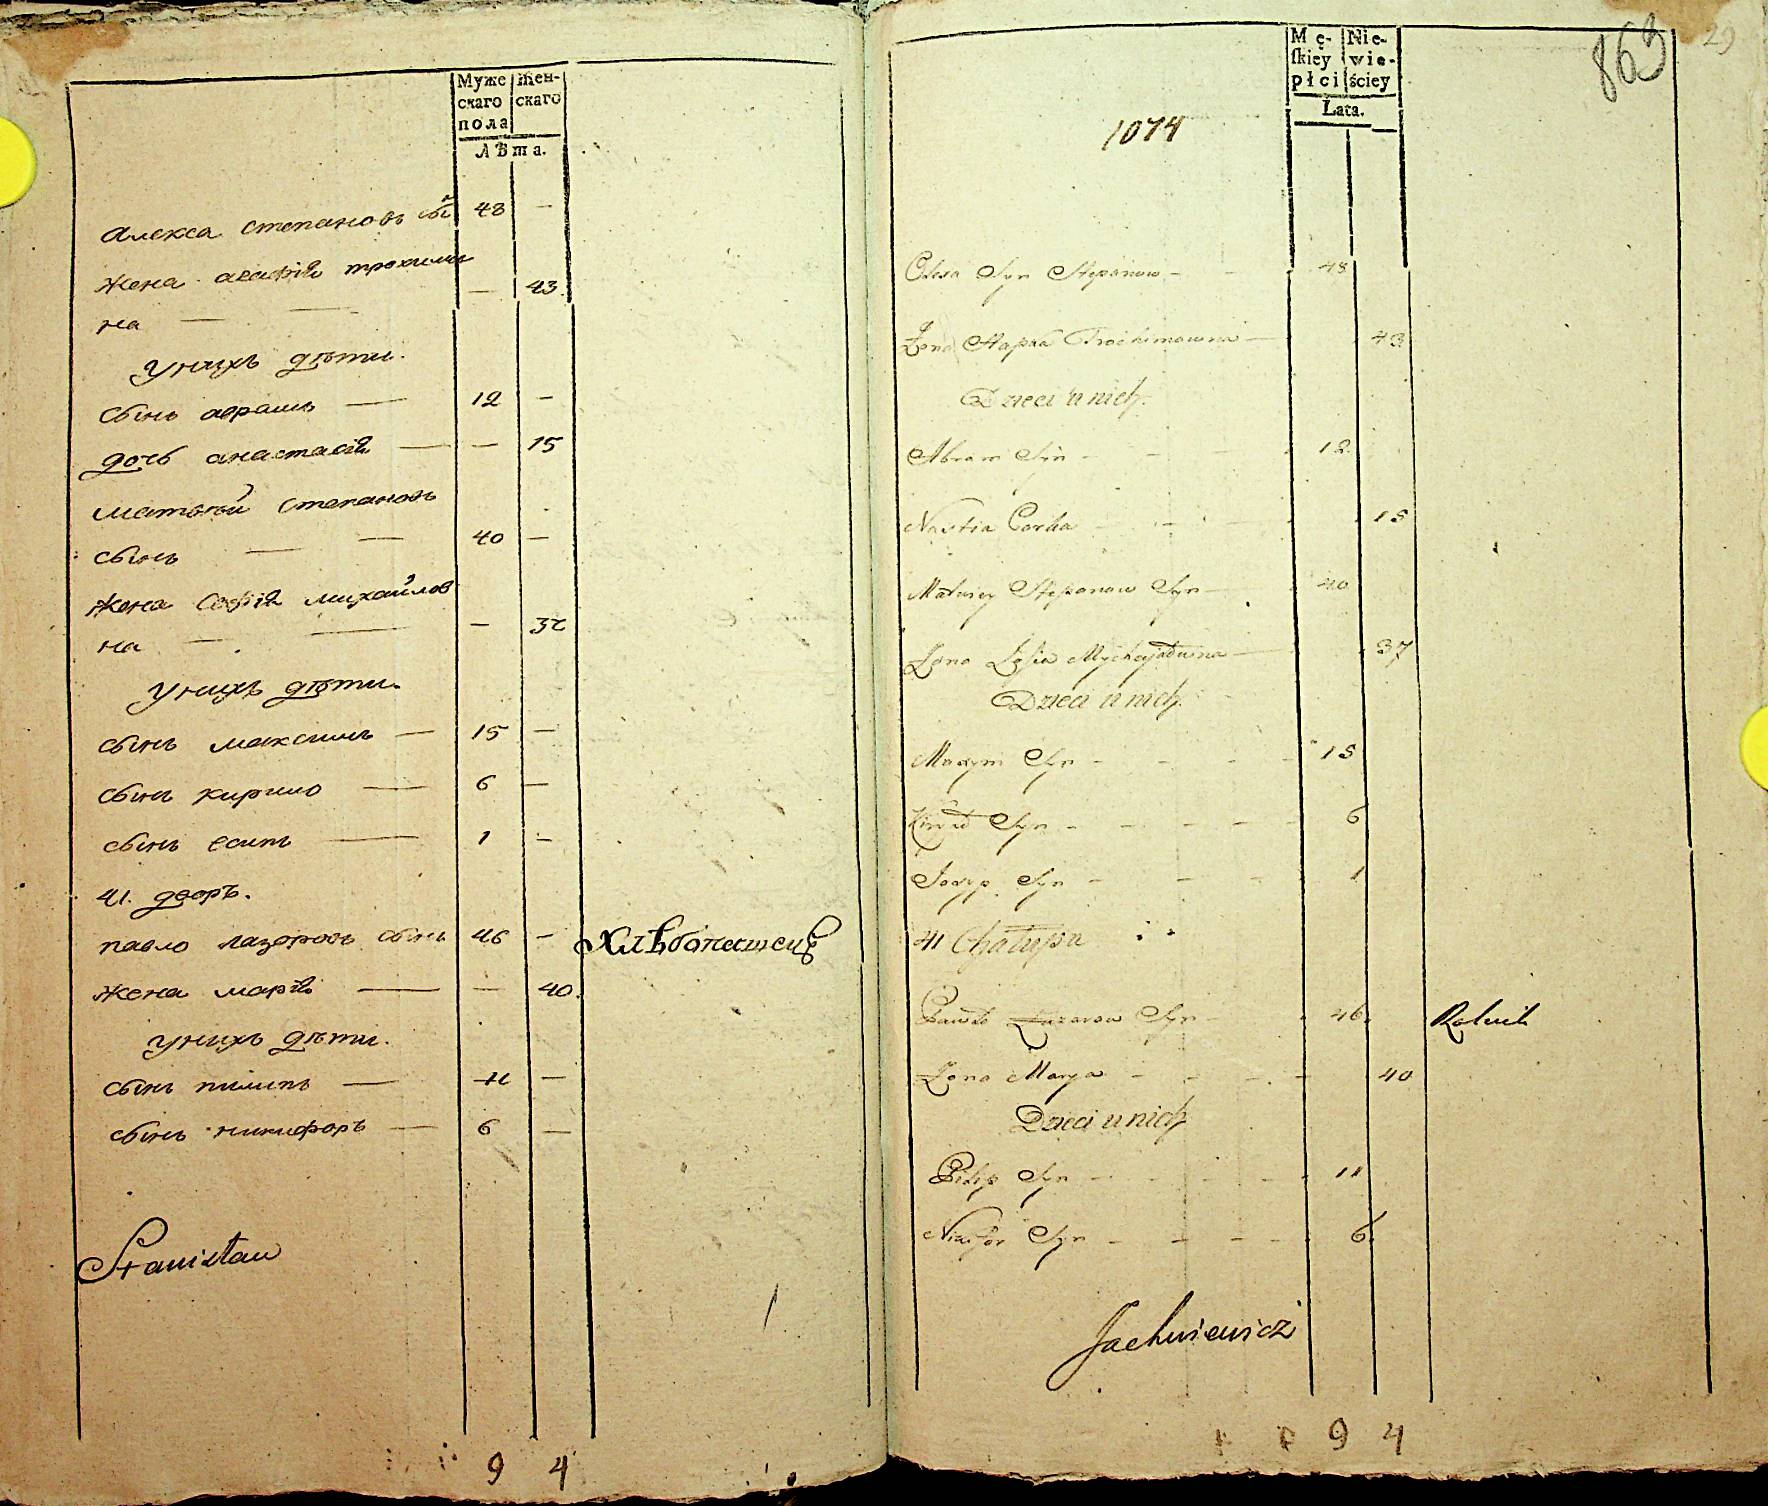 Муже
скаго
пола
Жен-
скаго
Лѣта.
алекса степановъ сы͠ 48 —
жена агафія трохимов 
на — — — 43
унихъ дѣти.
сынъ аврамъ — 12 —
дочь анастасія — — 15
матвѣй степановъ
сынъ — — 40 —
жена софія михайлов
на — — — 37
унихъ дѣти.
сынъ максимъ — 15 —
сынъ кирило — 6 —
сынъ есипъ — 1 —
41. дворъ.
павло лазоровъ сынъ 46 — Хлѣбопашецъ
жена марія — — 40.
унихъ дѣти.
сынъ пилипъ — 11 —
сынъ никифоръ — 6 —
Stanisław
9 4
863 29
Mę-
skiey
płci
Nie-
wie-
ściey
Lata.
1074
Olexa Syn Stepanow - - - 48
Żona Hapka Trochimowna — 43
Dzieci u nich.
Abram Syn - - - 12
Nastia Corka - - 15
Matwiey Stepanow Syn — 40
Żona Zofia Mychayłowna — 37
Dzieci u nich.
Maxym Syn - - - - 15
Kiryło Syn - - - - - 6
Josyp Syn - - - 1
41 Chałupa
Pawło Łazarow Syn - 46. Rolnik
Żona Marya - - - - 40
Dzieci u nich
Pilip Syn - - - - - 11
Nikifor Syn - - - - 6.
Jachniewicz
9 4